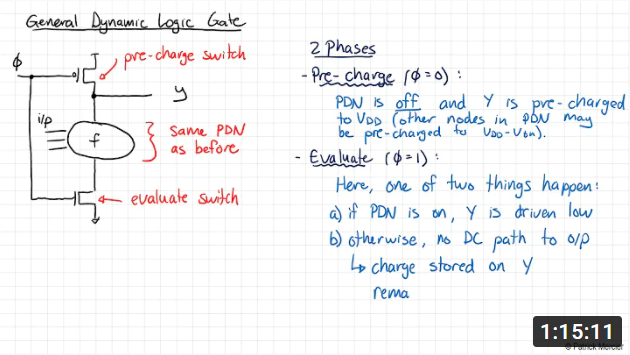 General Dynamic Logic Gate
φ
pre-charge switch
y
i/p
f
same PDN
as before
evaluate switch
2 Phases
- Pre-charge (φ=0) :
PDN is off and Y is pre-charged
to VDD (other nodes in PDN may
be pre-charged to VDD-VON).
- Evaluate (φ=1) :
Here, one of two things happen:
a) if PDN is on, Y is driven low
b) otherwise, no DC path to o/p
↳ charge stored on Y
rema
1:15:11
Patrick Mercier